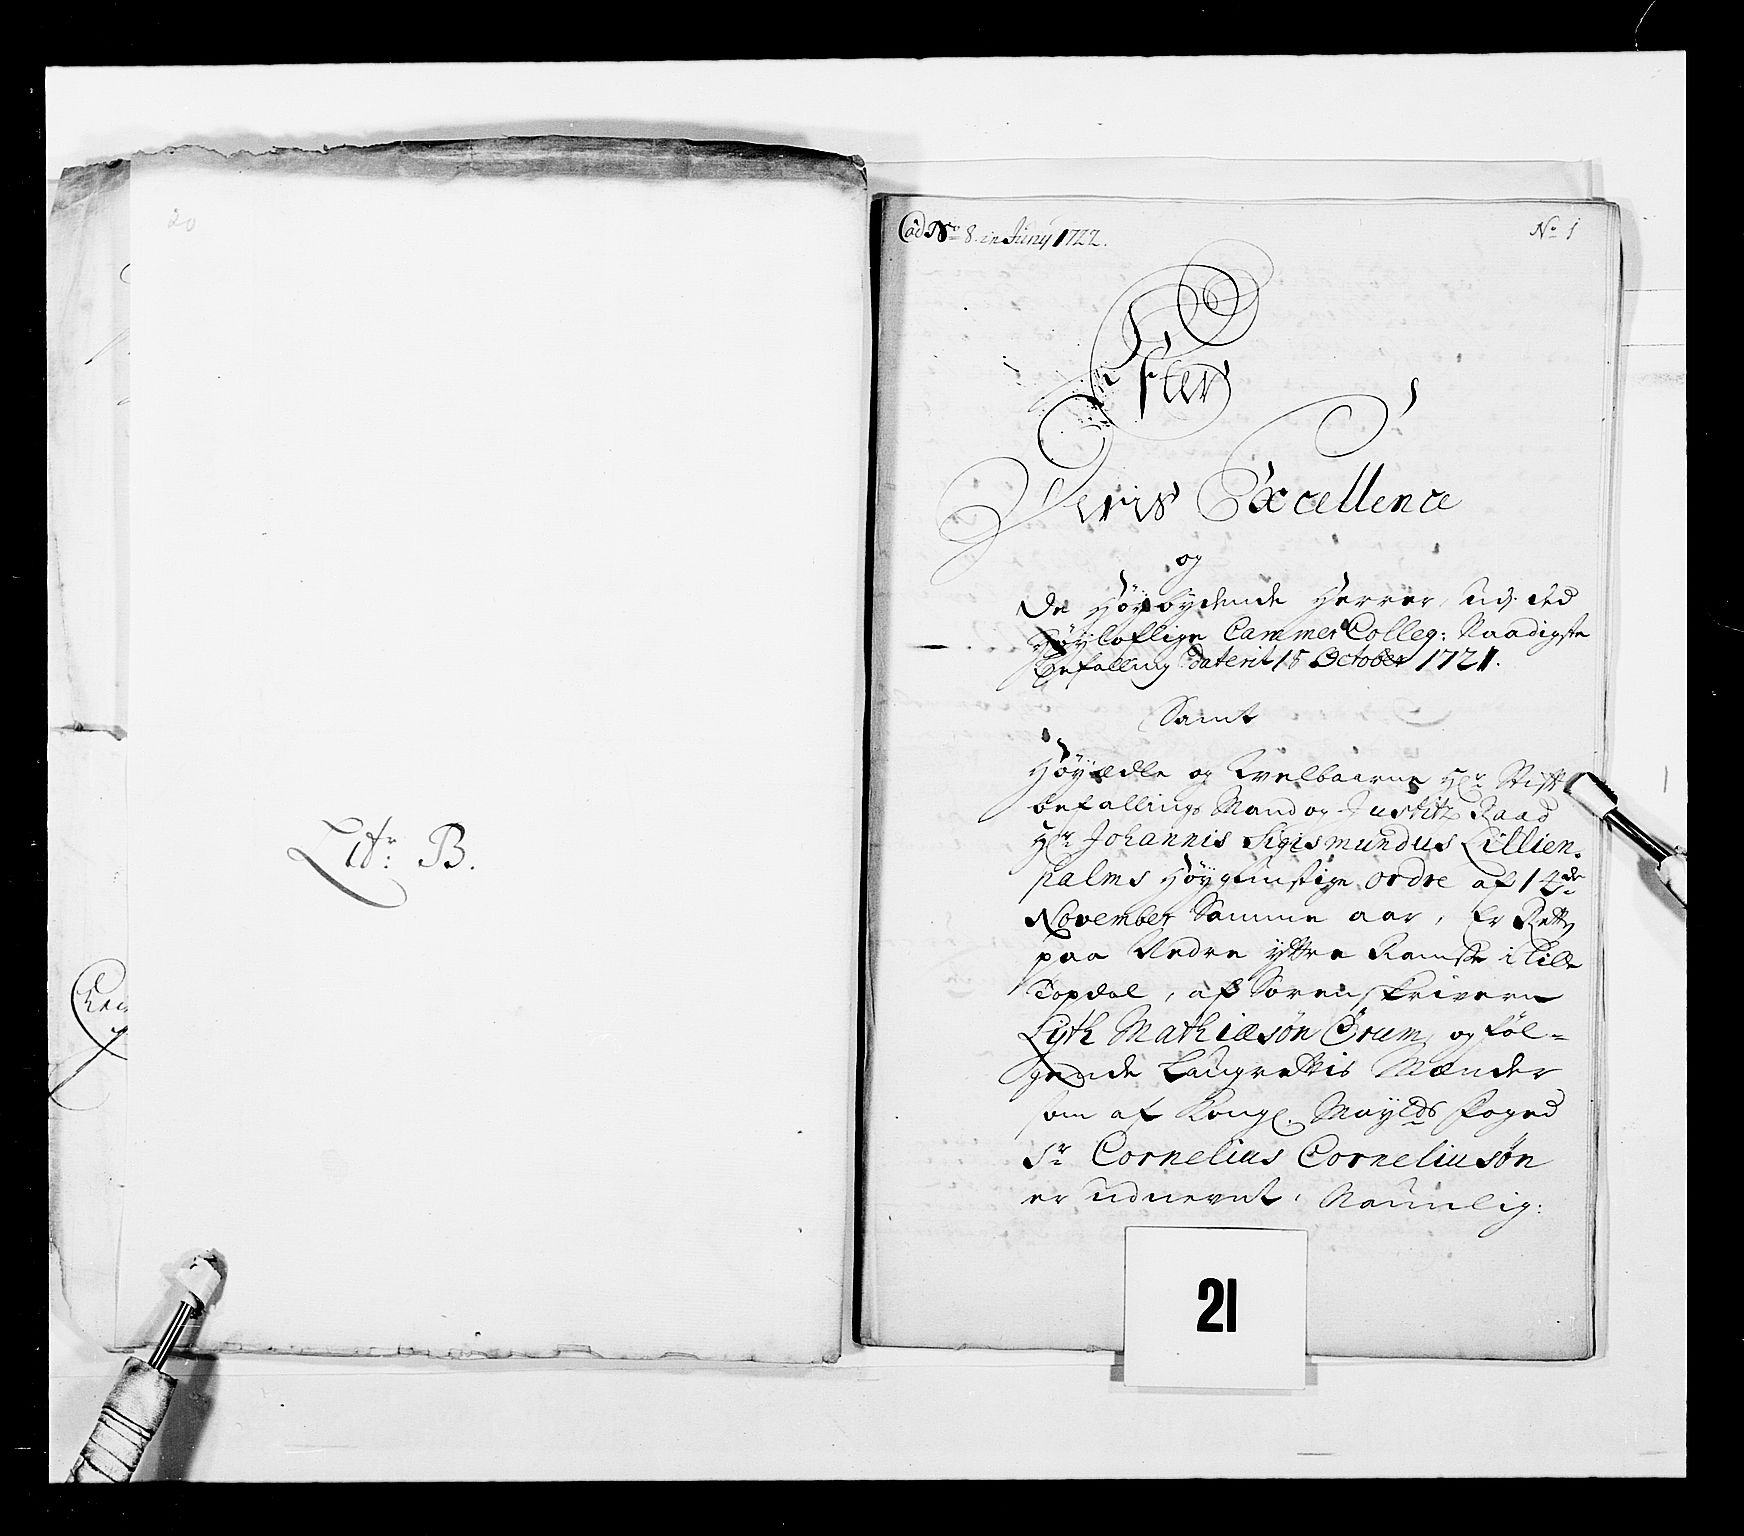 20
Litr: B.
Cad No 8. in Juny 1722.
No 1
Efter
Deris Excellence
og
De Høybydende Herrer, udj ded
Høyloflige Cammer Colleg: Naadigste
befalling daterit 15 October 1721.
Samt
Høyædle og Welbaarne Hr Stift
befallings Mand og Justitz Raad
Hr Johannis Sigismundus Lillien-
palms Høygunstige ordre af 14de
November Samme aar, Er Retten
paa Nedre yttre Ramse i Lille
Topdal, af Sorenskriveren
Lyth Mathiæsøn Ørum, og føl-
gende Laugrettis Mænder
som af Kongl. Mayts foged
Sr Cornelius Corneliusøn
er udnevnt, Naunlig:
21